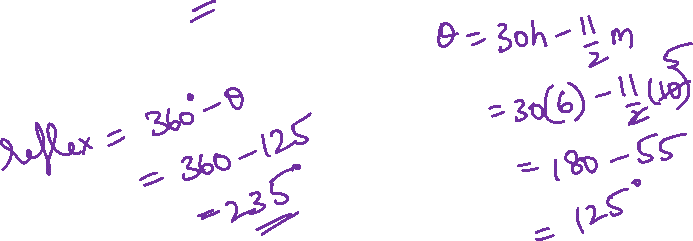 =
reflex = 360° - θ
= 360 - 125
= 235°
θ = 30h - 11/2 m
= 30(6) - 11/2 (10) 5
= 180 - 55
= 125°